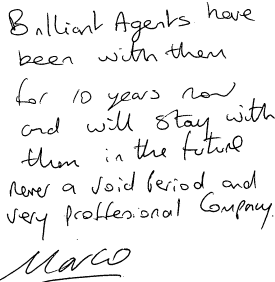 Brilliant Agents have
been with them
for 10 years now
and will stay with
them in the future
never a void period and
very proffesional Company.
Marco